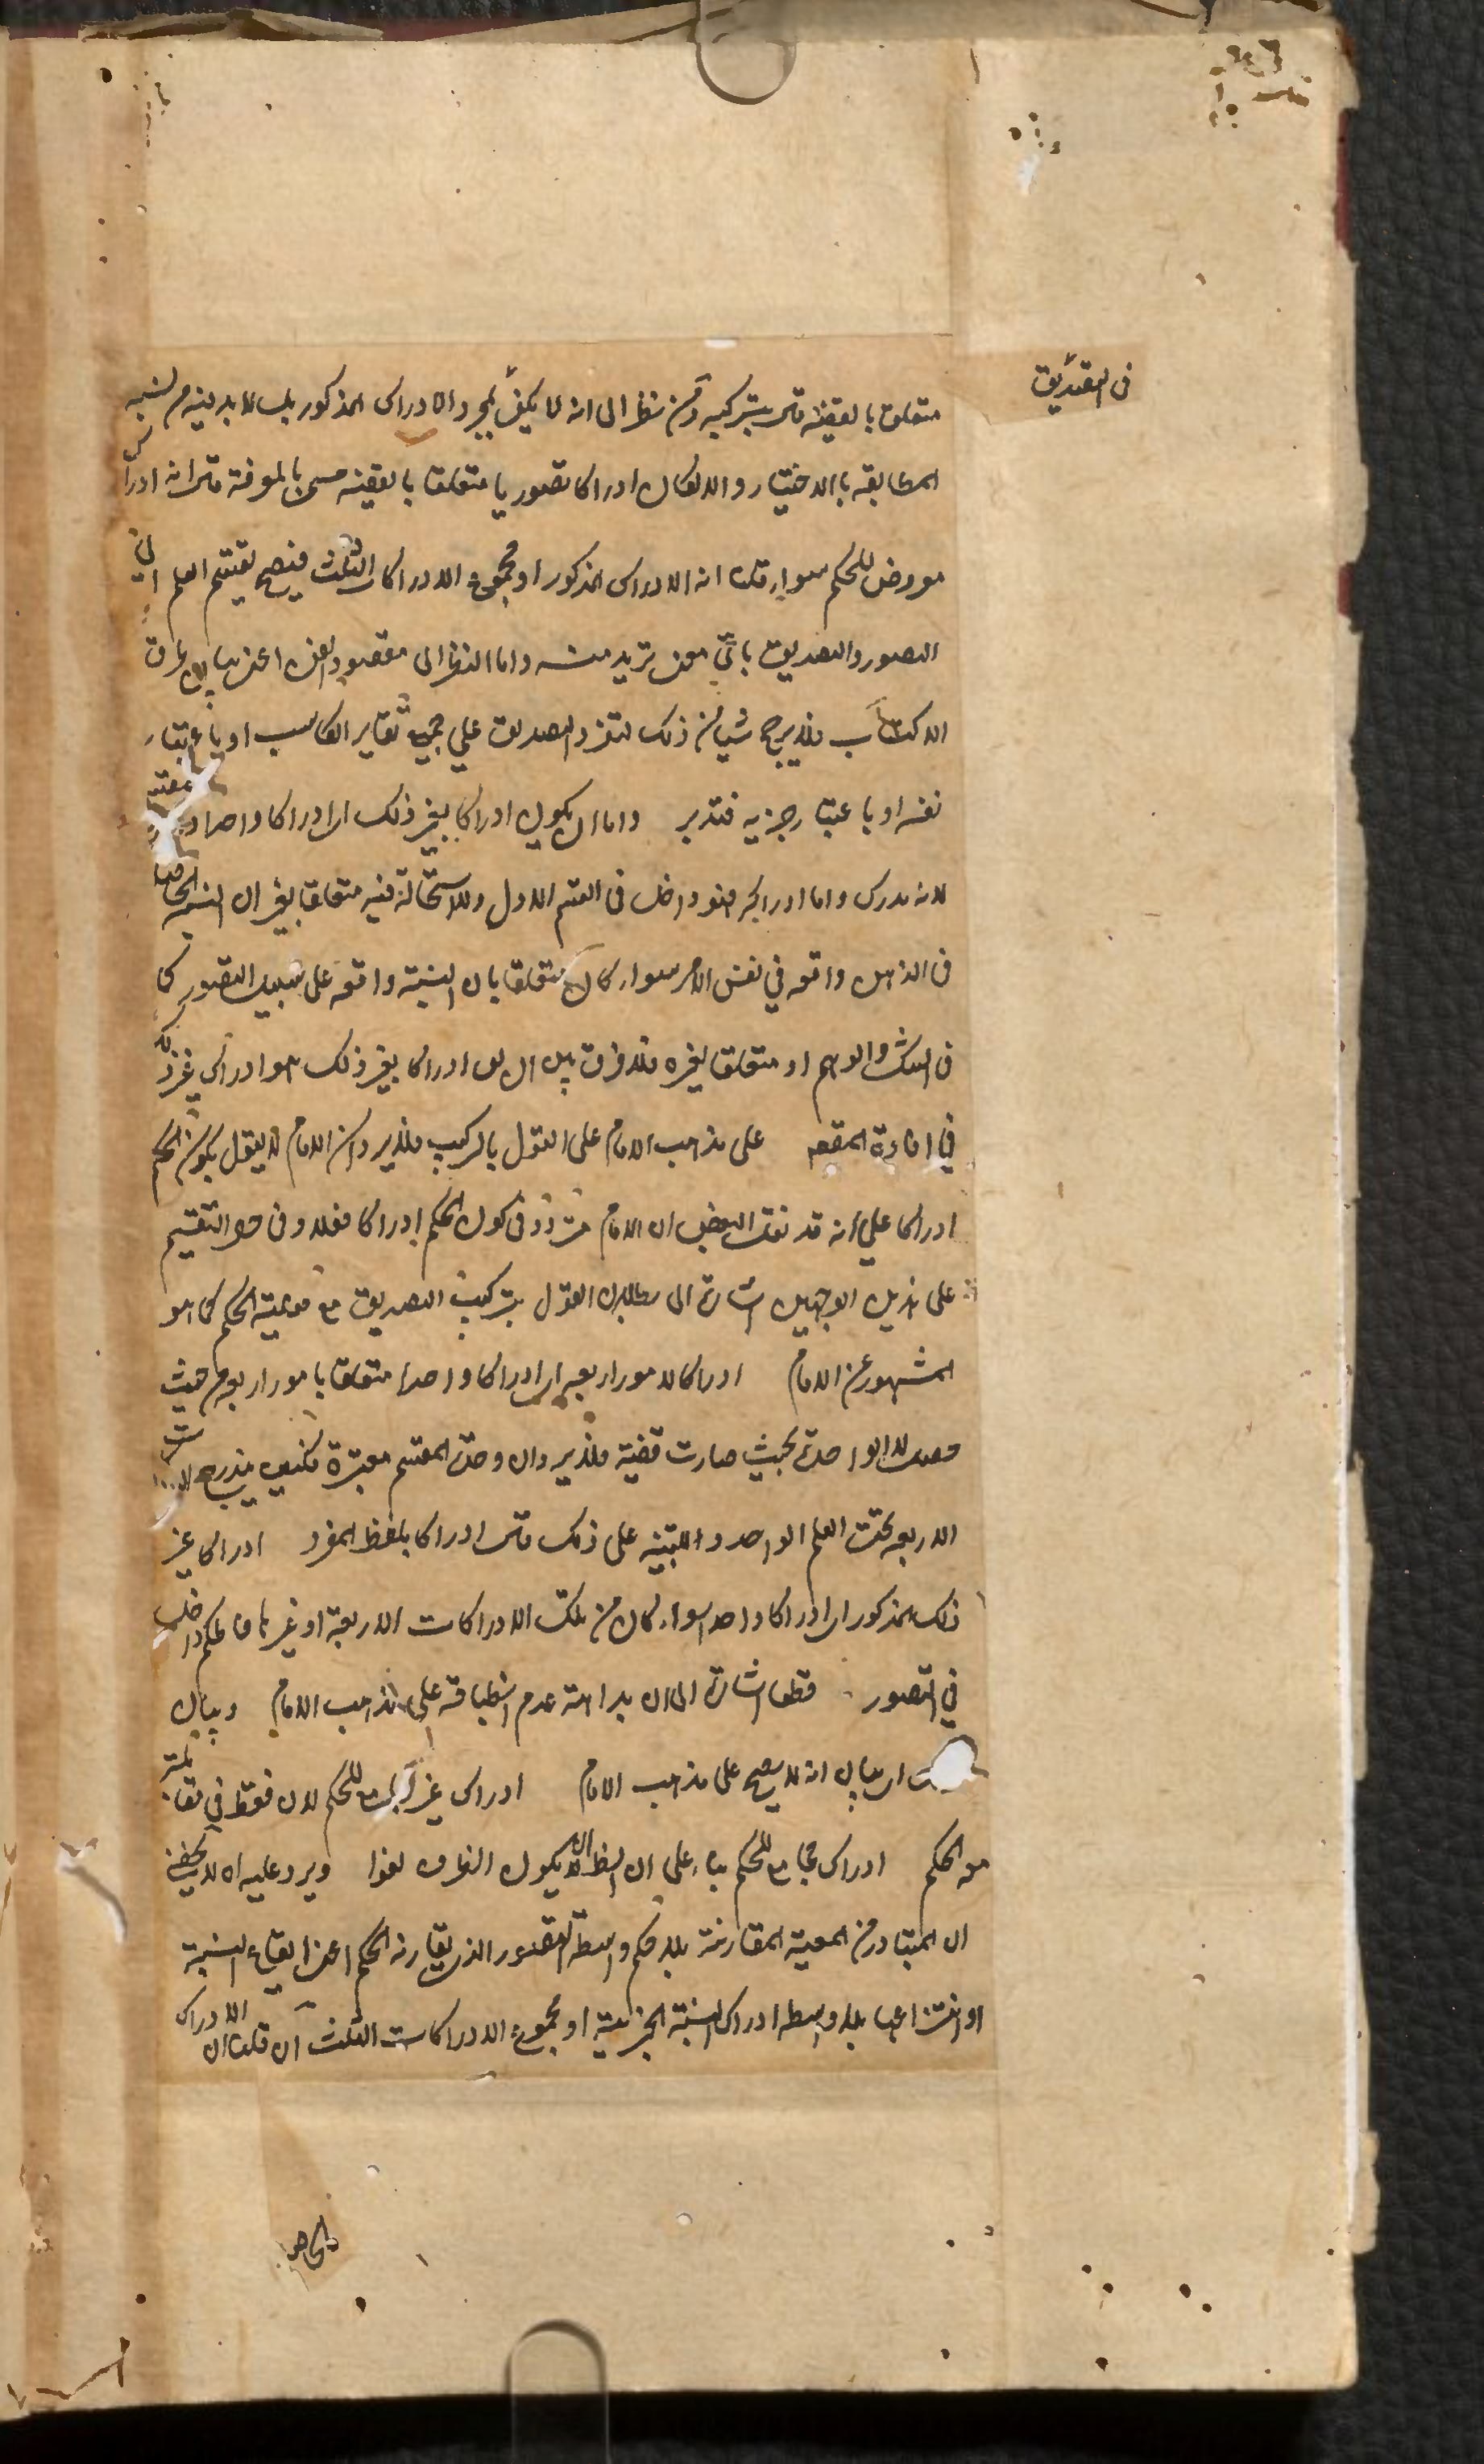 فى التصديق
متعلقا بالقضية قال بتركبه ومن نظر الى انه لا يكفى مجرد الادراك المذكور بل لا بد فيه من نسبة
المطابقة بالاختيار والا لكان ادراكا تصوريا متعلقا بالقضية مسمى بالمعرفة قال انه ادراك
معروض للحكم سواء قلنا انه الادراك المذكور او مجموع الادراكات الثلث فيصح تقسيم العلم الى
التصور والتصديق باى معنى تريد منه واما النظر الى مقصود الفن اعنى بيان طرق
الاكتساب فلا يرجح شيئا من ذلك لتفرد التصديق على جميع تقادير الكاسب او باعتبار
نفسه او باعتبار جزئيه فتدبر واما ان يكون ادراكا بغير ذلك اى ادراكا واحدا
لانه مدرك واما ادراك فهو داخل فى القسم الاول ولا استحالة فيه متعلقا بغير ان النسبة الحاصلة
فى الذهن واقعة فى نفس الامر سواء كان متعلقا بان النسبة واقعة على سبيل التصور كما
فى الشك والوهم او متعلقا بغيره فلا فرق بين ان يق ادراكا بغير ذلك هو ادراك غير ذلك
فى افادة المقصد على مذهب الامام على القول بالتركيب فلا يرد ان الامام لا يقول بكون الحكم
ادراكا على انه قد نقل البعض ان الامام متردد فى كون الحكم ادراكا فعلا وفى التقسيم
على هذين الوجهين اشارة الى بطلان القول بتركيب التصديق مع فعلية الحكم كما هو
المشهور عن الامام ادراكا لامور اربعة اى ادراكا واحدا متعلقا بامور اربعة من حيث
الوحدة بحيث صارت قضية فلا يرد ان وحدة المقسم معتبرة فكيف يندرج
الاربعة تحت العلم الواحد وللتنبيه على ذلك قال ادراكا بلفظ المفرد ادراكا غير
ذلك المذكور اى ادراكا واحدا سواء كان من تلك الادراكات الاربعة او غيرها فالحكم داخل
فى التصور قطعا اشارة الى ان بداهة عدم انطباقه على مذهب الامام وبيان
اى بيان انه لا يصح على مذهب الامام ادراك غير مجامع للحكم لان فقط فى مقابلة
معه الحكم ادراك مجامع للحكم بناء على ان الظاهر ان يكون الظرف لغوا ويرد عليه انه لا يخفى
ان المتبادر من المعية المقارنة بلا واسطة التصور الذى يقارنه الحكم اعنى ايقاع النسبة
او انتزاعها بلا واسطة ادراك النسبة الخبرية او مجموع الادراكات الثلث ان قلنا ان الادراك